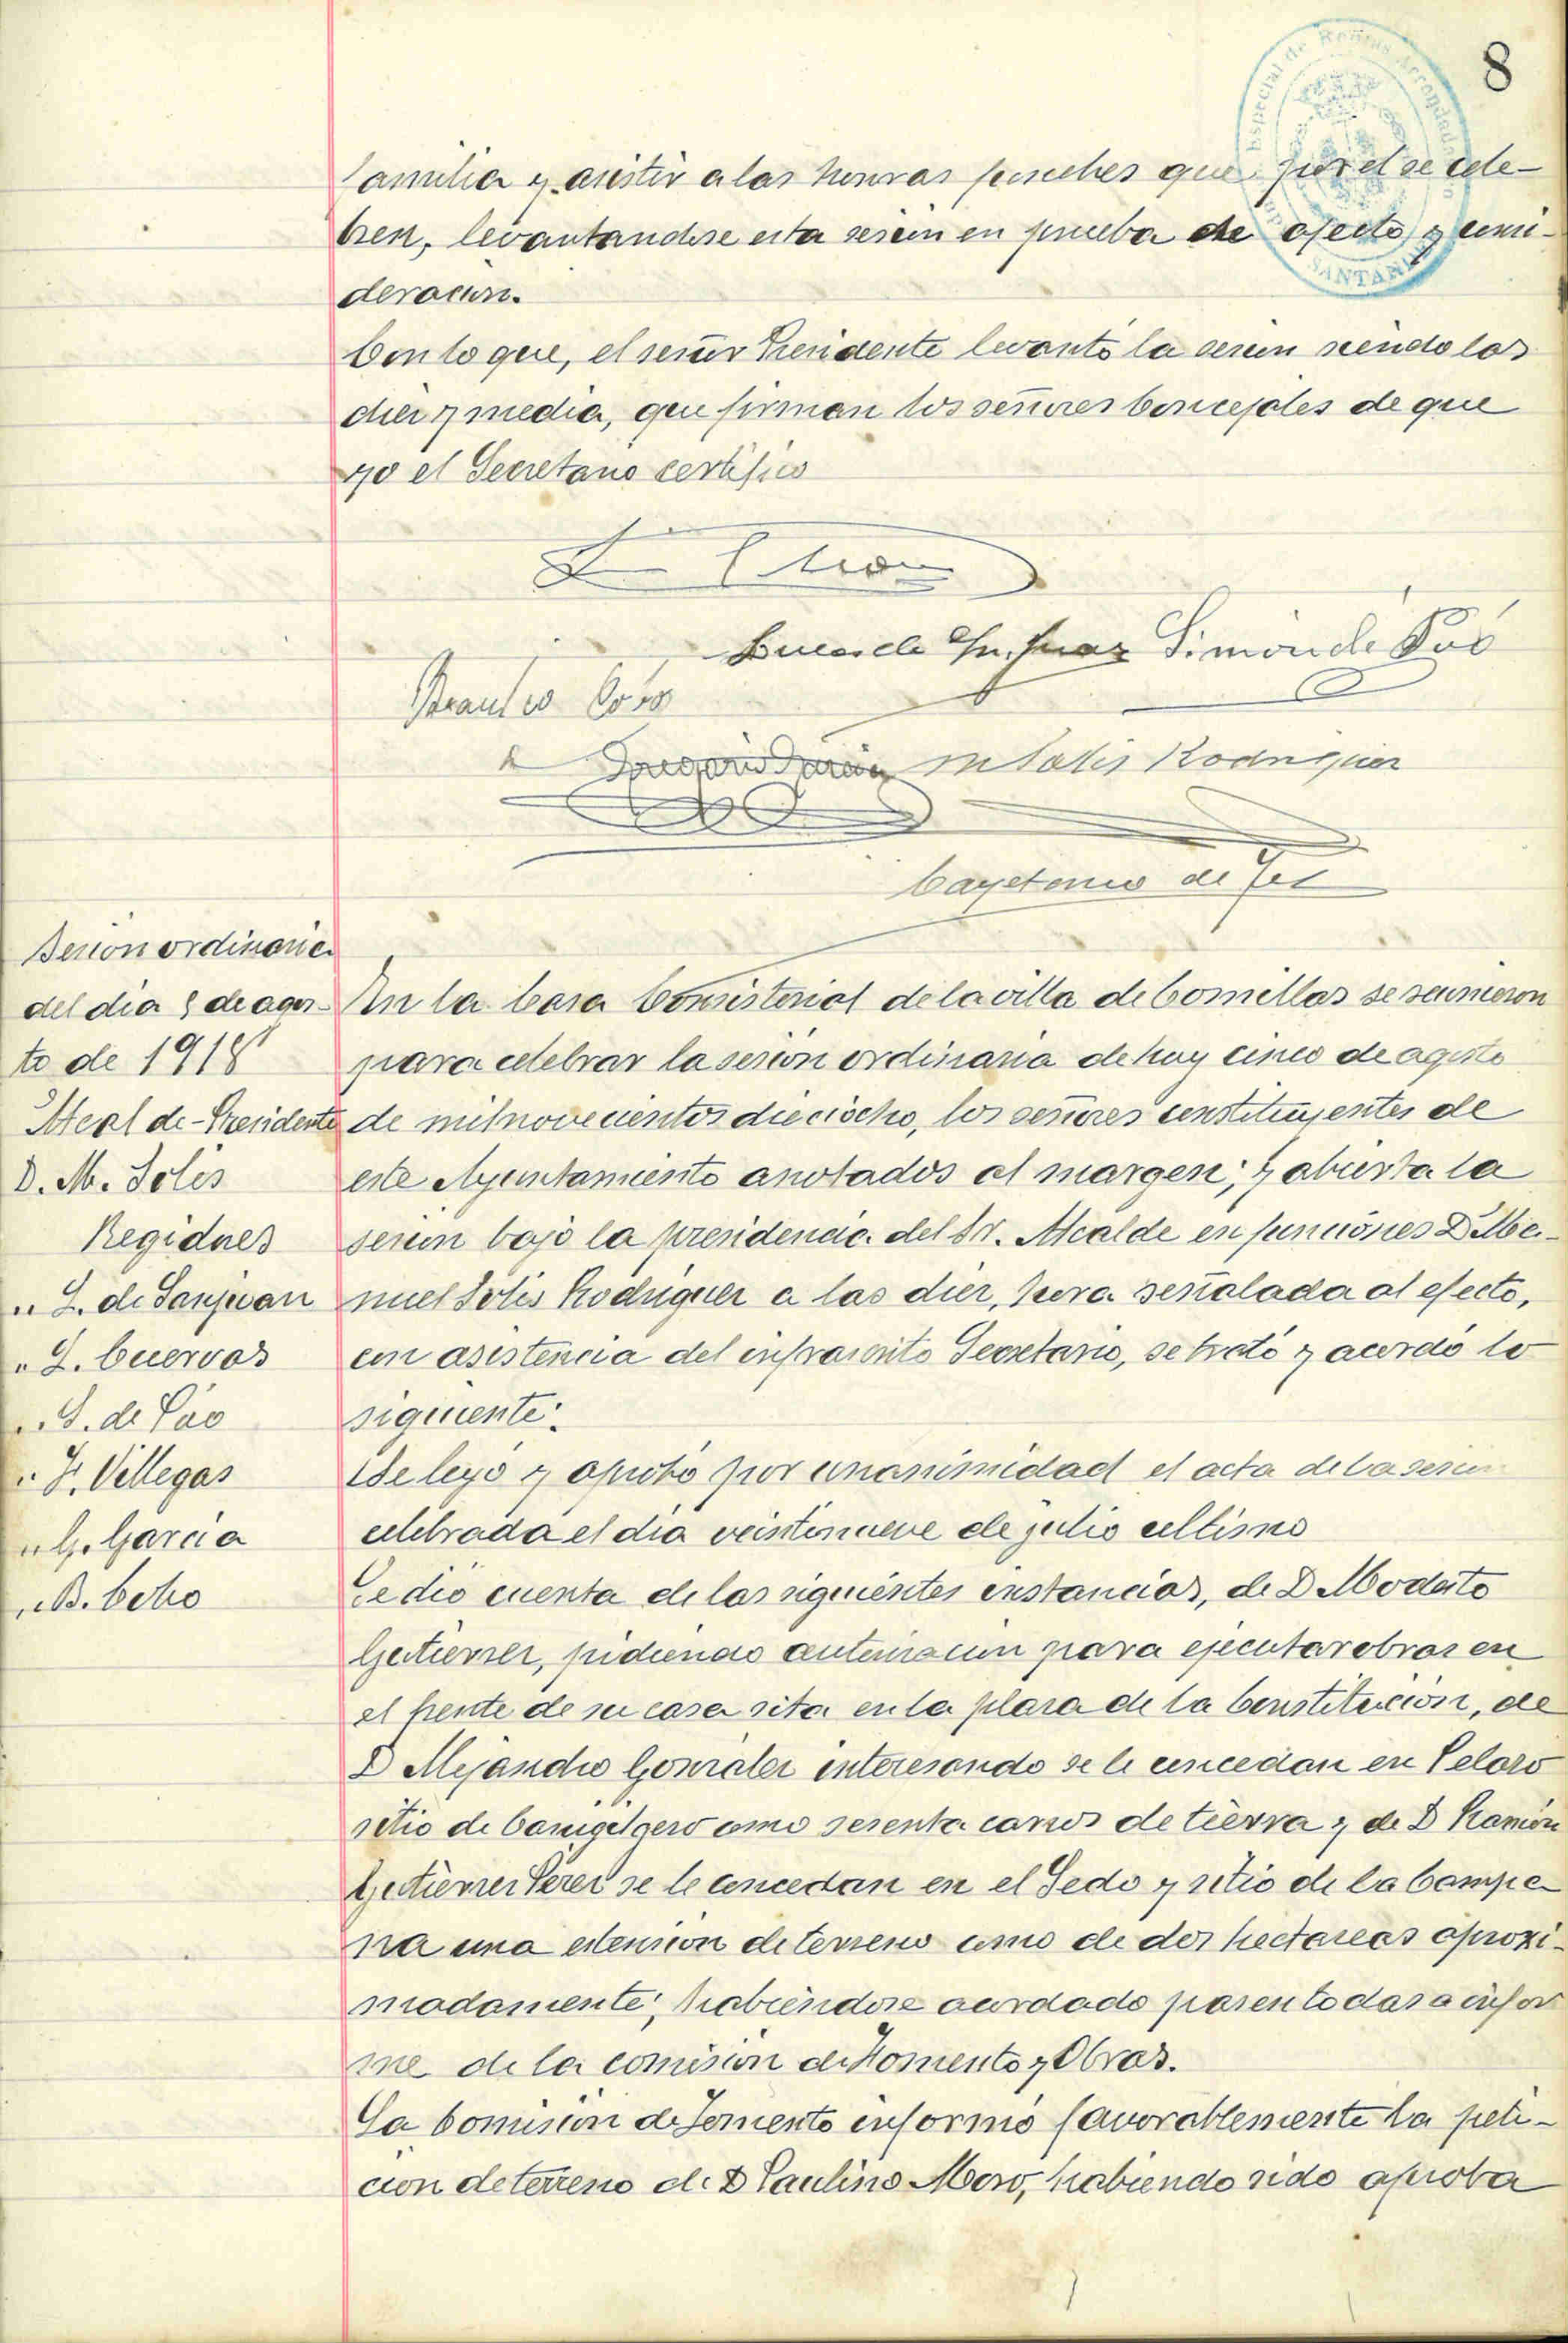 8
Especial de Rentas Arrendadas
SANTANDER
familia y asistir a las honras funebres que por el se cele-
bren, levantandose esta sesion en prueba de afecto y consi-
deracion.
Con lo que, el señor Presidente levantó la sesion siendo las
diez y media, que firman los señores Concejales de que
yo el Secretario certifico
Lucas de Sn. Juan Simón de Póo
Braulio Cobo
Gregorio Garcia M Solis Rodriguez
Cayetano de
Sesion ordinaria
del dia 5 de agos-
to de 1918
Alcalde-Presidente
D. M. Solis
Regidores
" L. de Sanjuan
" L. Cuervas
" S. de Póo
" F. Villegas
" G. Garcia
" B. Cobo
En la Casa Consistorial de la villa de Comillas se reunieron
para celebrar la sesion ordinaria de hoy cinco de agosto
de mil novecientos dieciocho, los señores constituyentes de
este Ayuntamiento anotados al margen; y abierta la
sesion bajo la presidencia del Sr. Alcalde en funciones D Ma-
nuel Solis Rodriguez a las diez, hora señalada al efecto,
con asistencia del infrascrito Secretario, se trató y acordó lo
siguiente:
Se leyó y aprobó por unanimidad el acta de la sesion
celebrada el dia veintinueve de julio ultimo
Se dió cuenta de las siguientes instancias, de D Modesto
Gutierrez, pidiendo autorizacion para ejecutar obras en
el frente de su casa sita en la plaza de la Constitucion, de
D Alejandro González interesando se le concedan en
sitio de como sesenta carros de tierra y de D Ramón
Gutierrez Perez se le concedan en el Sedo y sitio de la Campa-
na una estension de terreno como de dos hectareas aproxi-
madamente; habiendose acordado pasen todas a infor
me de la comision de Fomento y Obras.
La Comision de Fomento informó favorablemente la peti-
cion de terreno de D Paulino Moro, habiendo sido aproba